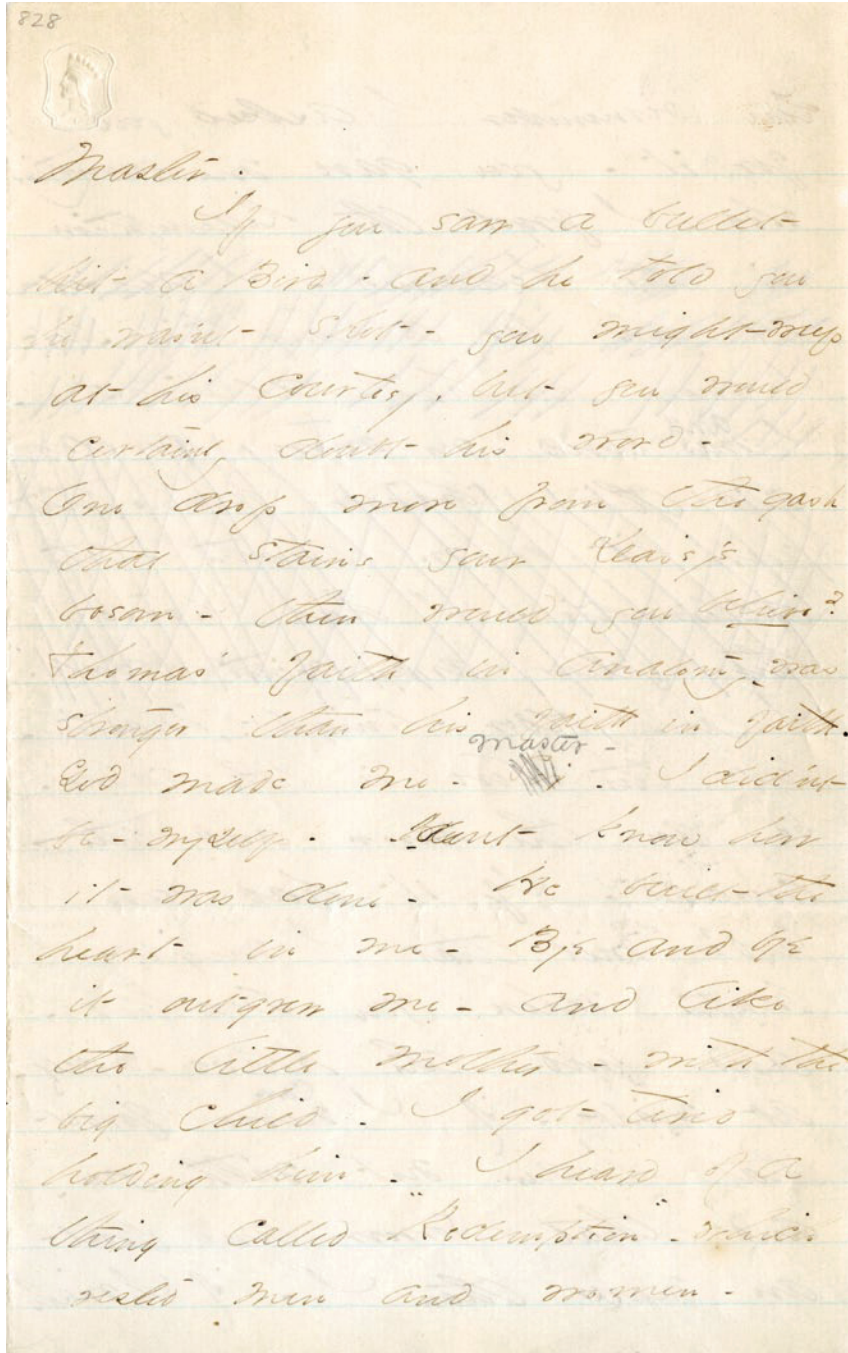 828
Master.
If you saw a bullet
hit a Bird - and he told you
he was'nt shot - you might weep
at his courtesy, but you would
certainly doubt his word -
One drop more from the gash
that stains your Daisy's
bosom - then would you believe?
Thomas' faith in Anatomy, was
stronger than his faith in faith.
Master -
God made me - . I did'nt
be - myself. I dont know how
it was done - He built the
heart in me - Bye and bye
it outgrew me - and like
the little mother - with the
big child - I got tired
holding him - I heard of a
thing called "Redemption" - which
rested men and women -